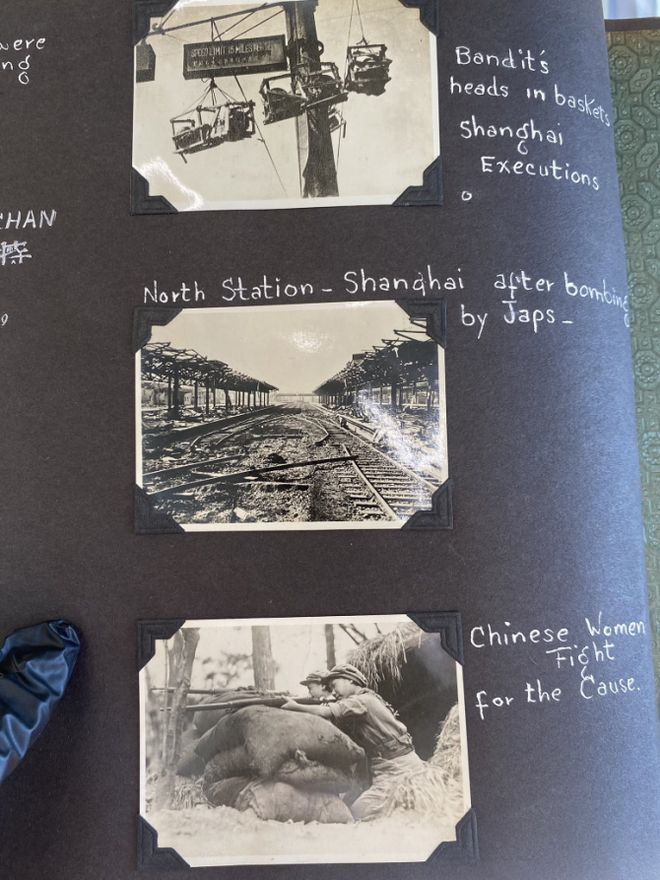 were
ng
SPEED LIMIT 15 MILES PER HR.
Bandit's
heads in baskets
Shanghai
Executions
CHAN
9
North Station - Shanghai after bombing
by Japs -
Chinese Women
Fight
for the Cause.